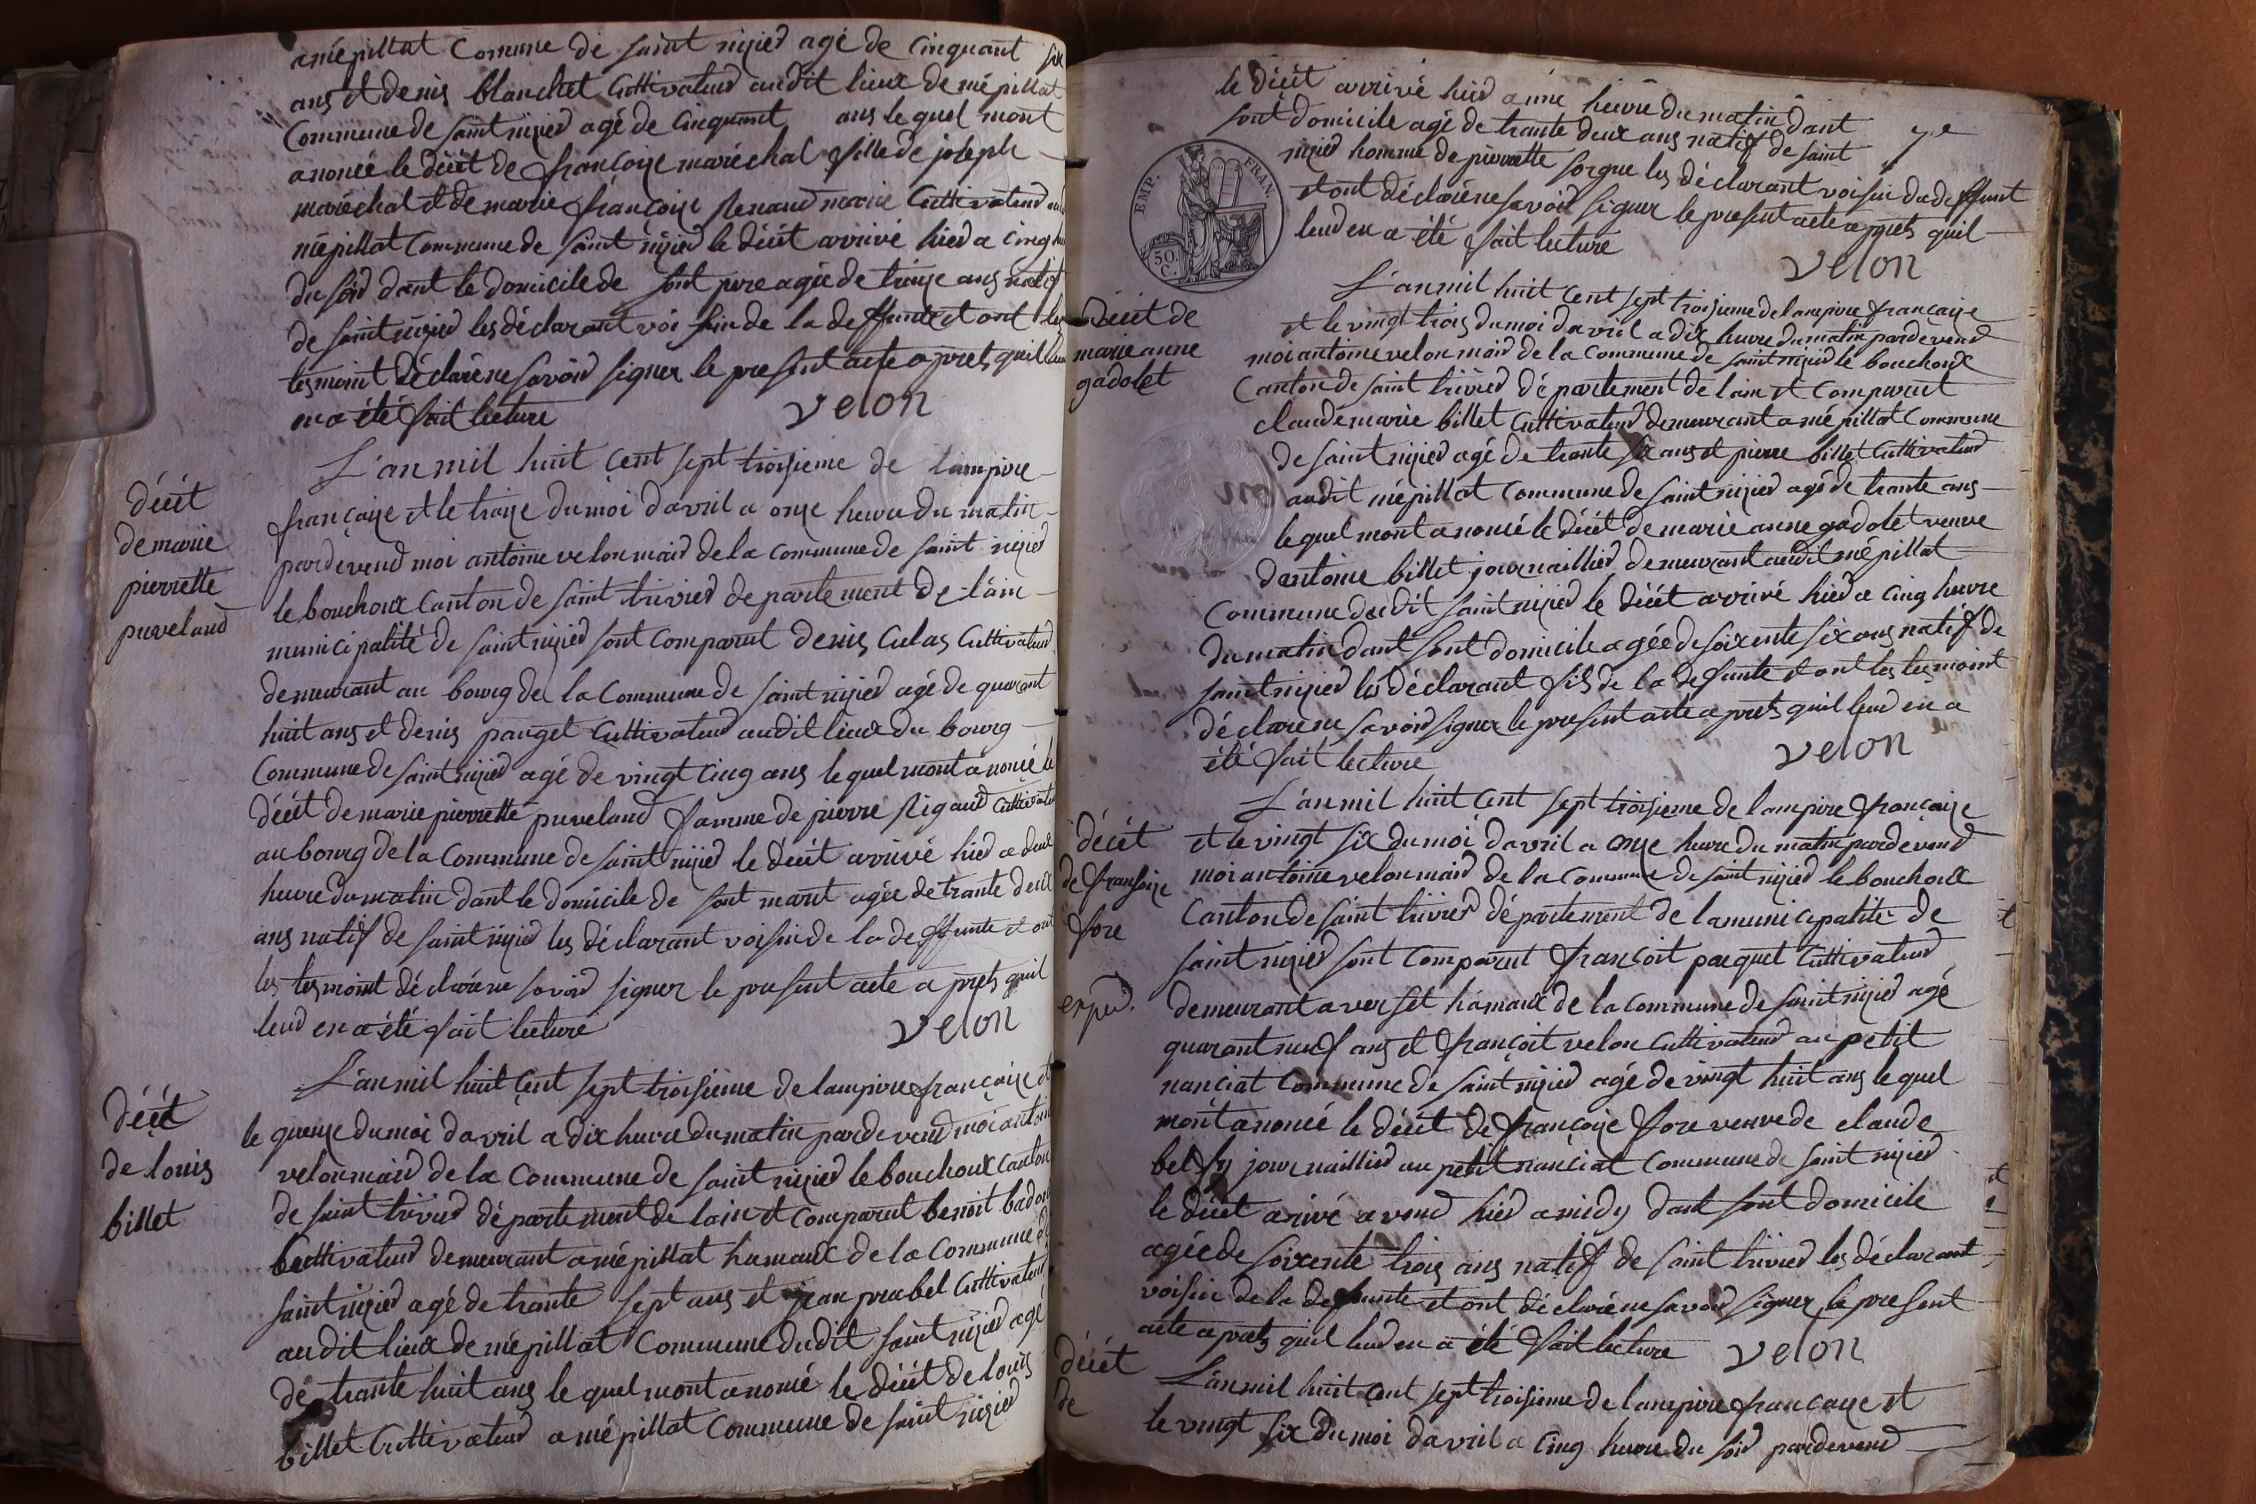 amépillat Comune de saint nizied agé de Cinquant six
ans et denis blanchet Cuttivateud audit lieux de mépillat
Commune de saint nizied agé de Cinquant ans le quel mont
anoncé le décét de françoize maréchal fille de joseph
maréchal et de marie françoize Renaud Cuttivateud
mépillat Commune de saint nizied le décét arrivé hied a Cinq
du soid dant le domicile de sont pere agée de traize ans natif
de saint nizied les déclarant voi sin de la deffunte et ont les
tesmoint déclaré ne savoid signer le present acte aprets quil leud
en a été fait lecture velon
L'an mil huit Cent sept troisieme de lampire
décét
de marie
pierrette
puveland
françaize et le traize du moi davril a onze heure du matin
pardevend moi antoine velon maid de la Commune de saint nizied
le bouchoux Canton de saint trivied departement de lain
municipalité de saint nizied sont Comparut denis Culas Cuttivateud
demeurant au bourg de la Commune de saint nizied agé de quarant
huit ans et denis pauget Cuttivateud audit lieux du bourg
Commune de saint nizied agé de vingt Cinq ans le quel mont anoncé le
décét de marie pierrette puveland famme de pierre Rigaud Cuttivateud
au bourg de la Commune de saint nizied le décét arrivé hied a deux
heure du matin dant le domicile de sont marit agée de trante deux
ans natif de saint nizied les déclarant voisin de la deffunte et ont
les tesmoint déclaré ne savoid signer le present acte aprets quil
leud en a été fait lecture velon
L'an mil huit Cent sept troisieme de lampire françaize et
décét
de louis
billet
le quenze du moi davril a dix heure du matin pardevend moi antoine
velon maid de la Commune de saint nizied le bouchoux Canton
de saint trivied département de lain et Comparut benoit
Cuttivateud demeurant a mépillat hamaux de la Commune de
saint nizied agé de trante sept ans et jean prabel Cuttivateud
audit lieux de mépillat Commune dudit saint nizied agé
de trante huit ans le quel mont anoncé le décét de louis
billet Cuttivateud a mépillat Commune de saint nizied
le décét arrivé hied a une heure du matin dant
sont domicile agé de trante deux ans natif de saint
nizied homme de pierrette sorgue les déclarant voisin du deffunt
et ont déclaré ne savoid signer le present acte aprets quil
leud en a été fait lecture
velon
EMP. FRAN.
50.
C.
L'an mil huit Cent sept troisieme de lampire françaize
Décét de
marie anne
gadolet
et le vingt trois du moi davril a dix heure du matin pardevend
moi antoine velon maid de la Commune de saint nizied le bouchoux
Canton de saint trivied département de lain et Comparut
claude marie billet Cuttivateud demeurant a mépillat Commune
de saint nizied agé de trante six ans et pierre billet Cuttivateud
audit mépillat Commune de saint nizied agé de trante ans
le quel mont anoncé le décét de marie anne gadolet veuve
dantoine billet journaillied demeurant audit mépillat
Commune dudit saint nizied le décét arrivé hied a Cinq heure
du matin dant sont domicile agée de soixente six ans natif de
saint nizied les déclarant fils de la defunte et ont les tesmoint
déclaré ne savoid signer le present acte aprets quil leud en a
été fait lecture velon
L'an mil huit Cent sept troisieme de lampire françaize
décét
de fransoize
fore
exped.
et le vingt six du moi davril a onze heure du matin pardevend
moi antoine velon maid de la Commune de saint nizied le bouchoux
Canton de saint trivied département de la municipalité de
saint nizied sont Comparut françoit paequet Cuttivateud
demeurant a verset hamaux de la Commune de saint nizied agé
quarant neuf ans et françoit velon Cuttivateud au petit
nanciat Commune de saint nizied agé de vingt huit ans le quel
mont anoncé le décét de françoize fore veuve de claude
belfy journaillied au petit nanciat Commune de saint nizied
le décét arivé avend hied a midy dant sont domicile
agée de soixente trois ans natif de saint trivied les déclarant
voisin de la defunte et ont déclaré ne savoid signer le present
acte aprets quil leud en a été fait lecture velon
décét
de
L'an mil huit Cent sept troisieme de lampire françaize et
le vingt six du moi davril a Cinq heure du soid pardevend